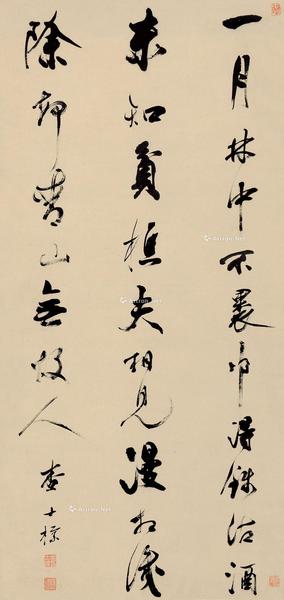 一月林中不裹巾得錢沽酒
未知貧樵夫相見漫相識
除卻青山無故人
查士標
Artron.Net